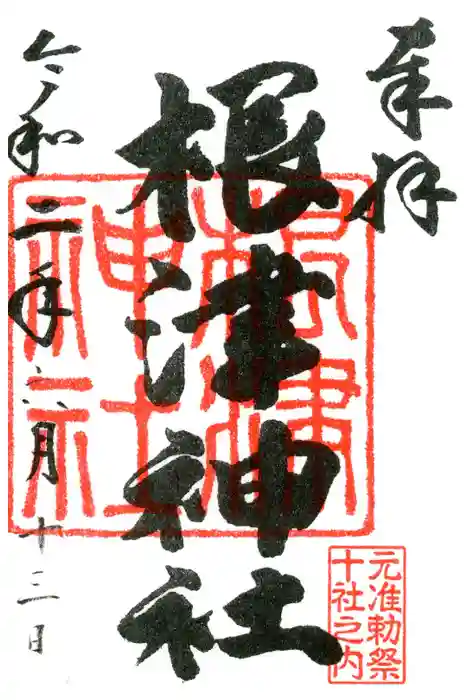 奉拝
根津神社
根津神社
元准勅祭
十社之内
令和二年六月十三日